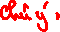 Chú ý: